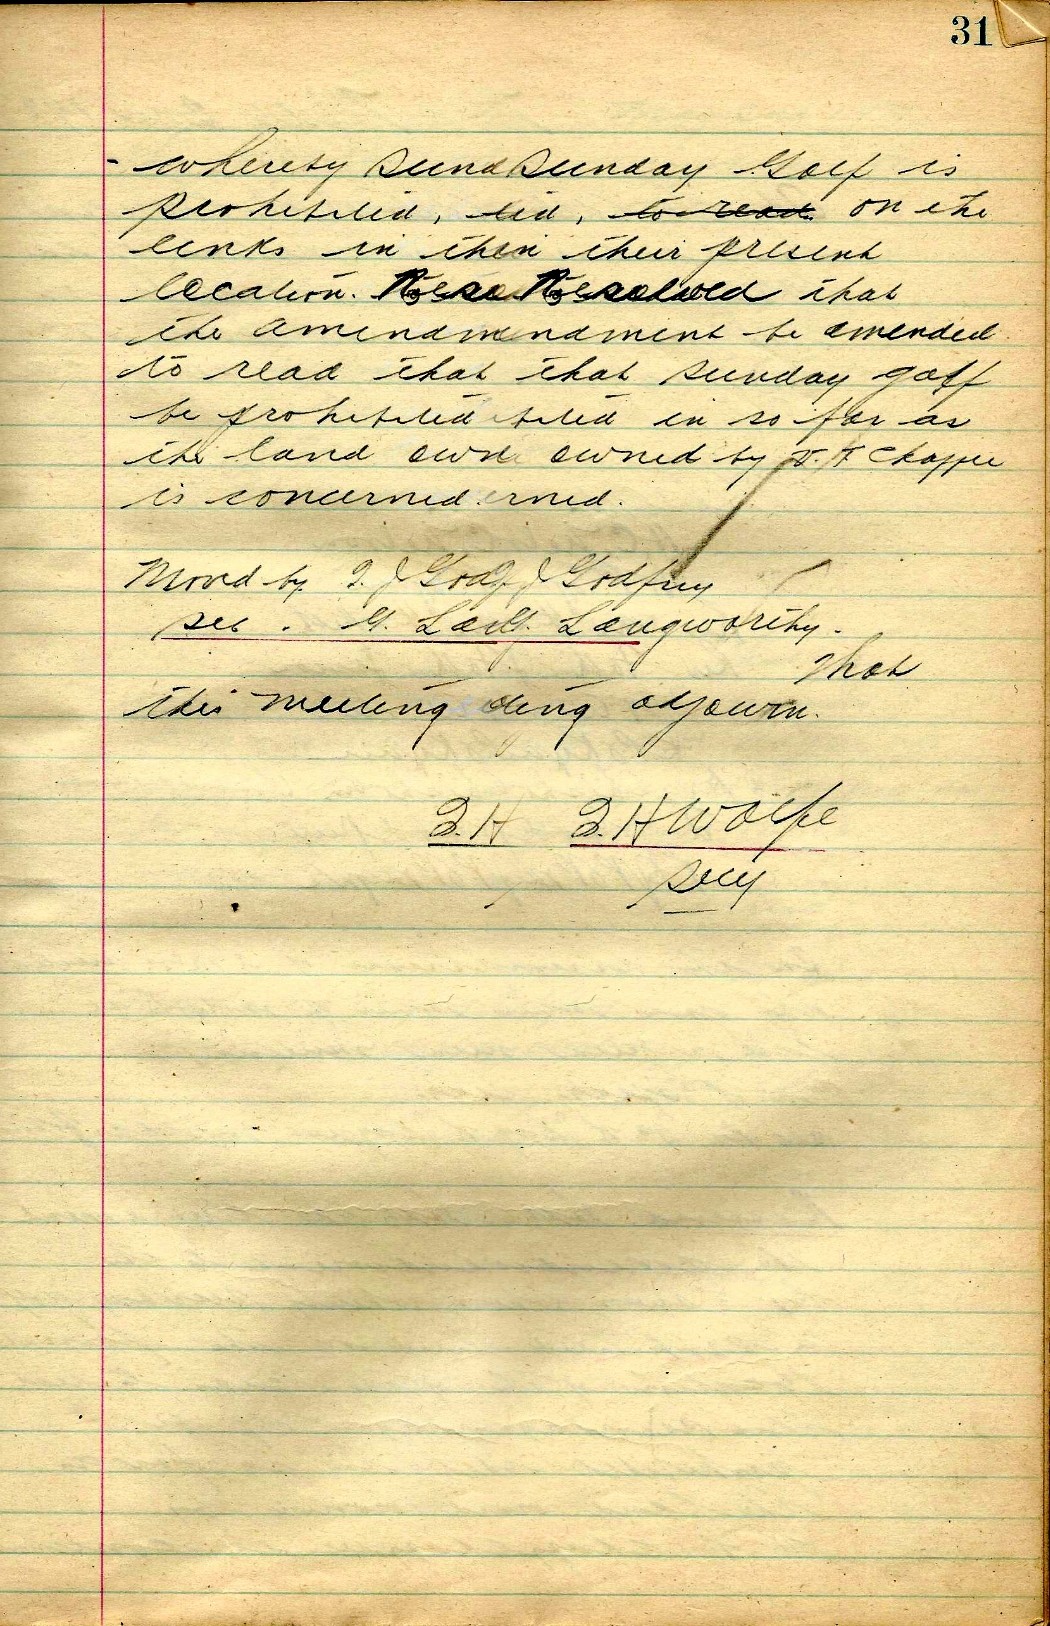 31
- whereby Sund Sunday Golf is
prohibited, ted, to read on the
links in then their present
location. Reso Resolved that
the amendmendment be amended
to read that that Sunday golf
be prohibited bited in so far as
the land own owned by J. T Chappee
is concerned erned.
Moved by J. J God J. J Godfrey
sec. G. Lan G. Langworthy.
That
this meeting eting adjourn.
J. H J. H Wolfe
Secy